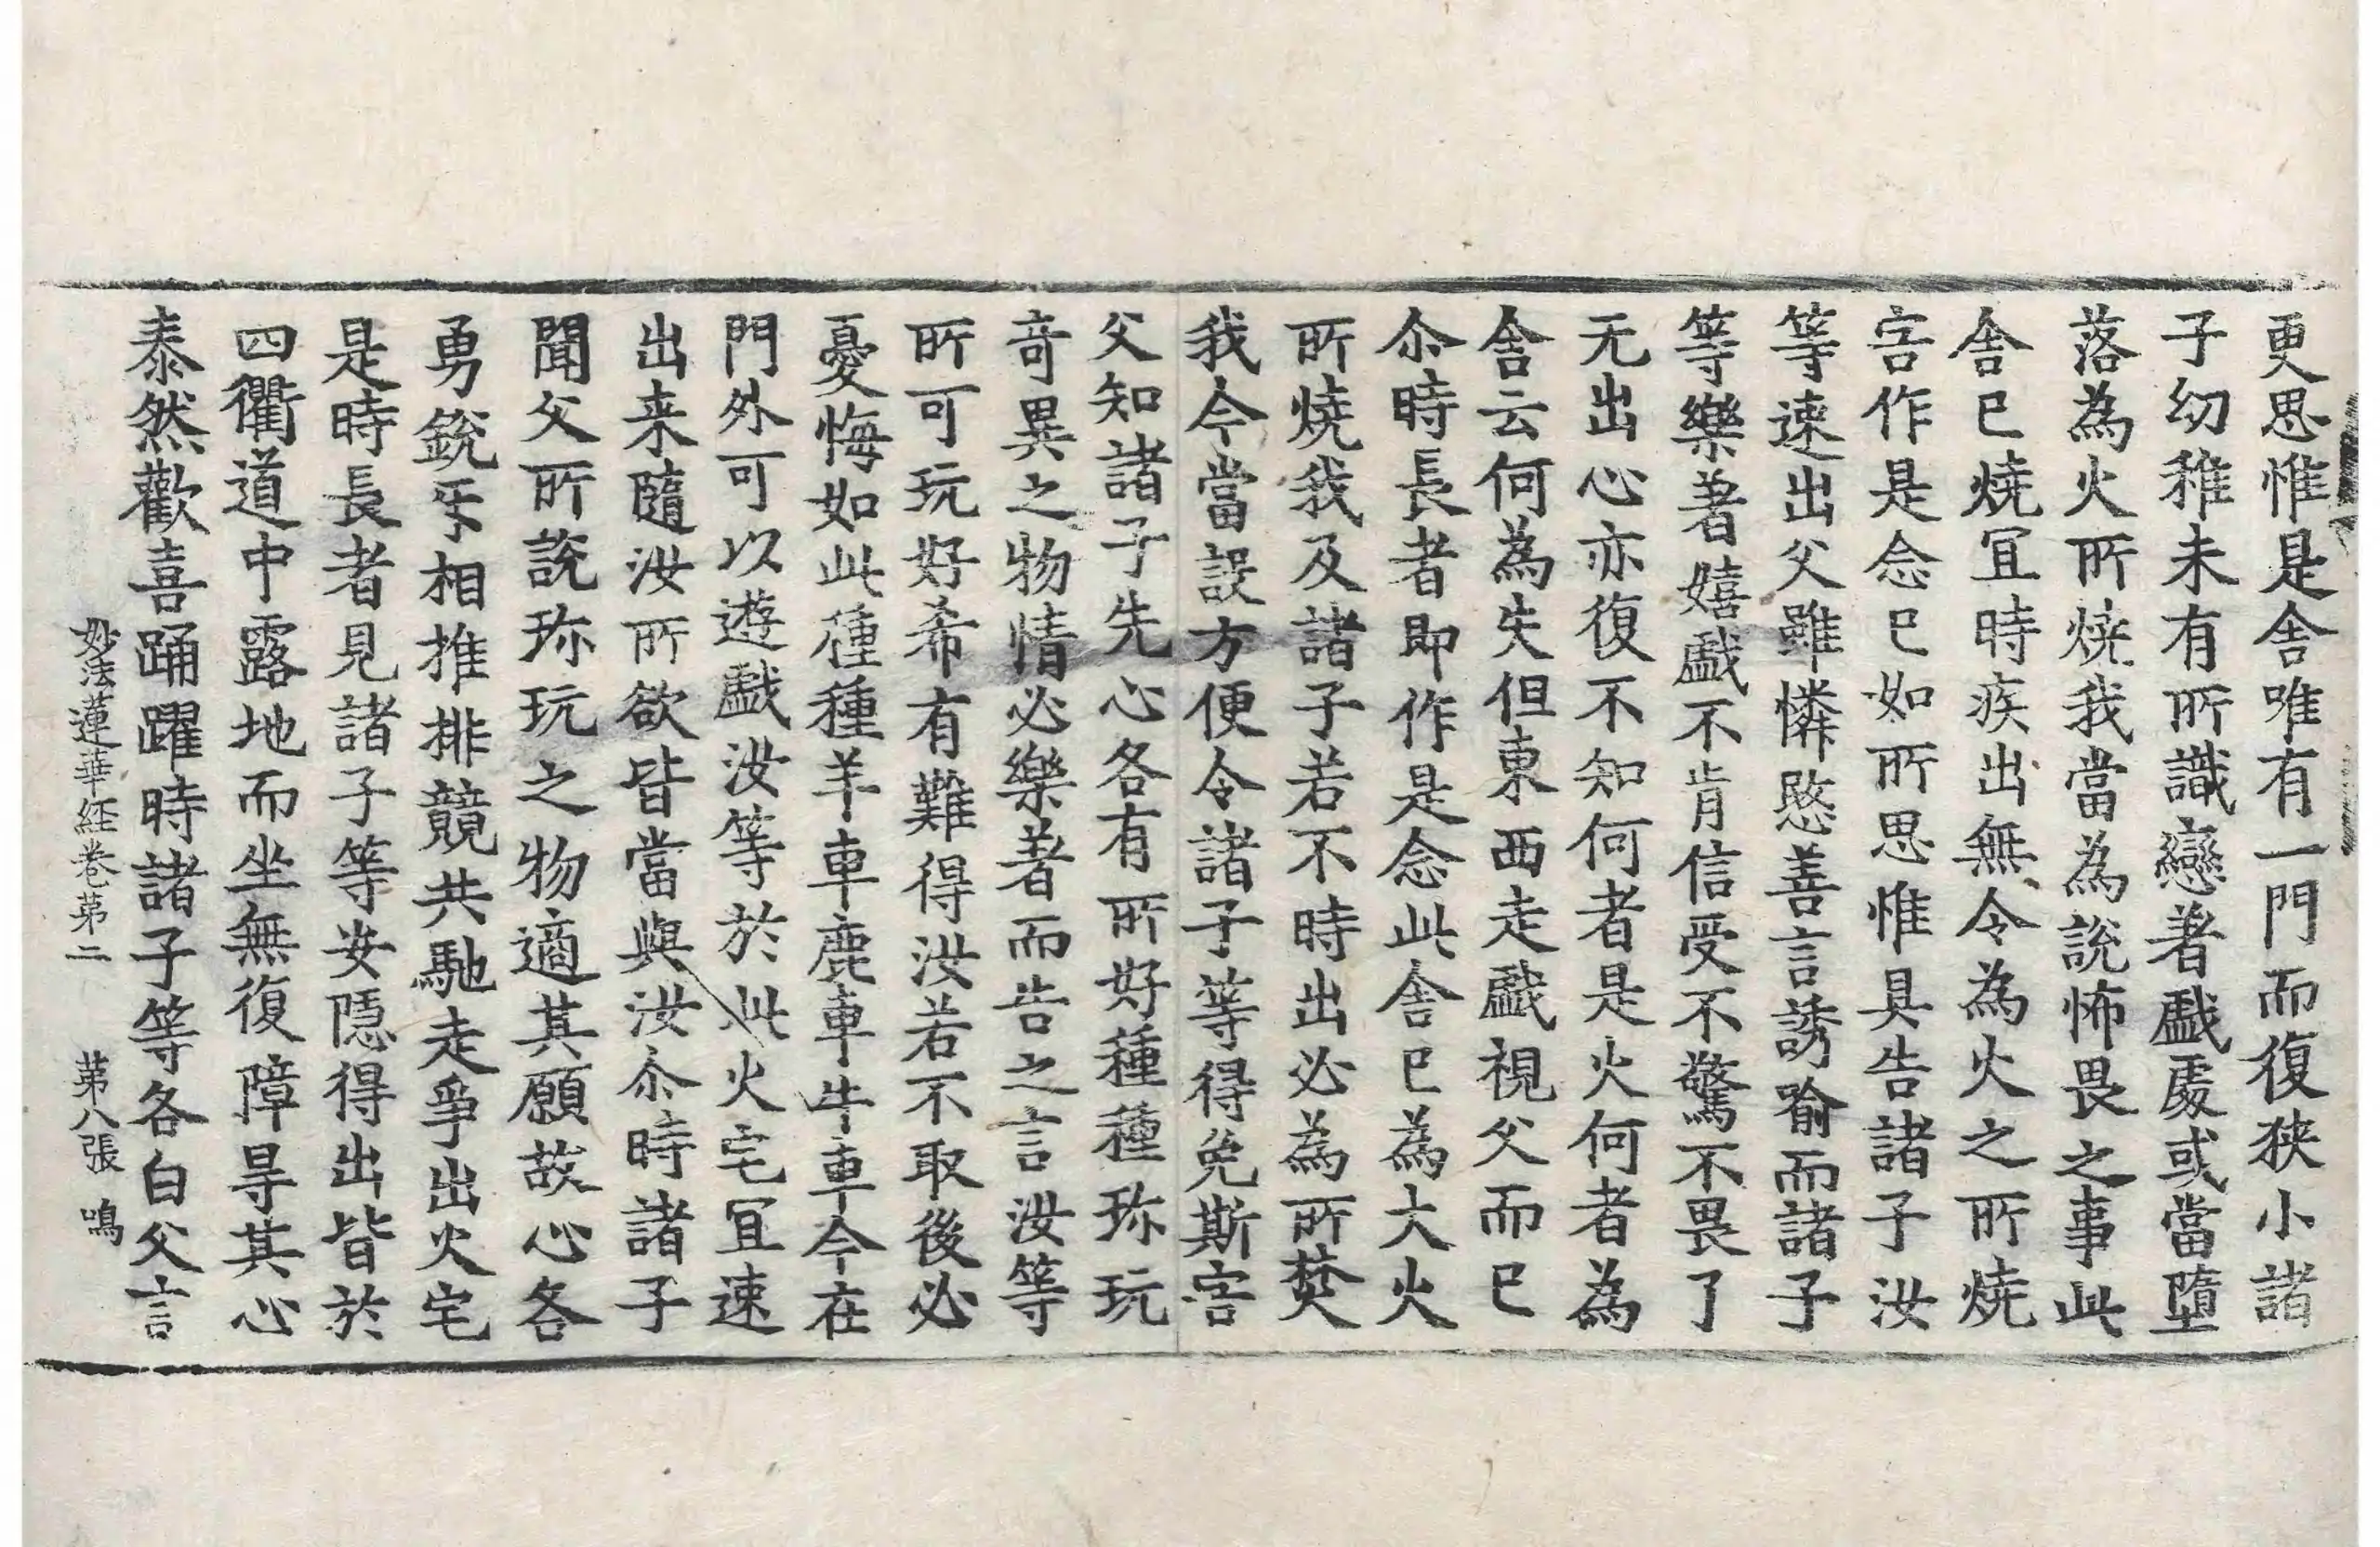 更思惟是舍唯有一門而復狹小諸
子幼稚未有所識戀著戲處或當墮
落為火所燒我當為說怖畏之事此
舍已燒冝時疾出無令為火之所燒
害作是念已如所思惟具告諸子汝
等速出父雖憐愍善言誘喻而諸子
等樂著嬉戲不肯信受不驚不畏了
无出心亦復不知何者是火何者為
舍云何為失但東西走戲視父而已
尒時長者即作是念此舍已為大火
所燒我及諸子若不時出必為所焚
我今當設方便令諸子等得免斯害
父知諸子先心各有所好種種珎玩
竒異之物情必樂著而告之言汝等
所可玩好希有難得汝若不取後必
憂悔如此種種羊車鹿車牛車今在
門外可以遊戲汝等於此火宅冝速
出来隨汝所欲皆當與汝尒時諸子
聞父所說珎玩之物適其願故心各
勇銳㸦相推排競共馳走爭出火宅
是時長者見諸子等安隱得出皆於
四衢道中露地而坐無復障㝵其心
泰然歡喜踊躍時諸子等各白父言
妙法蓮華経卷第二 第八張 鳴